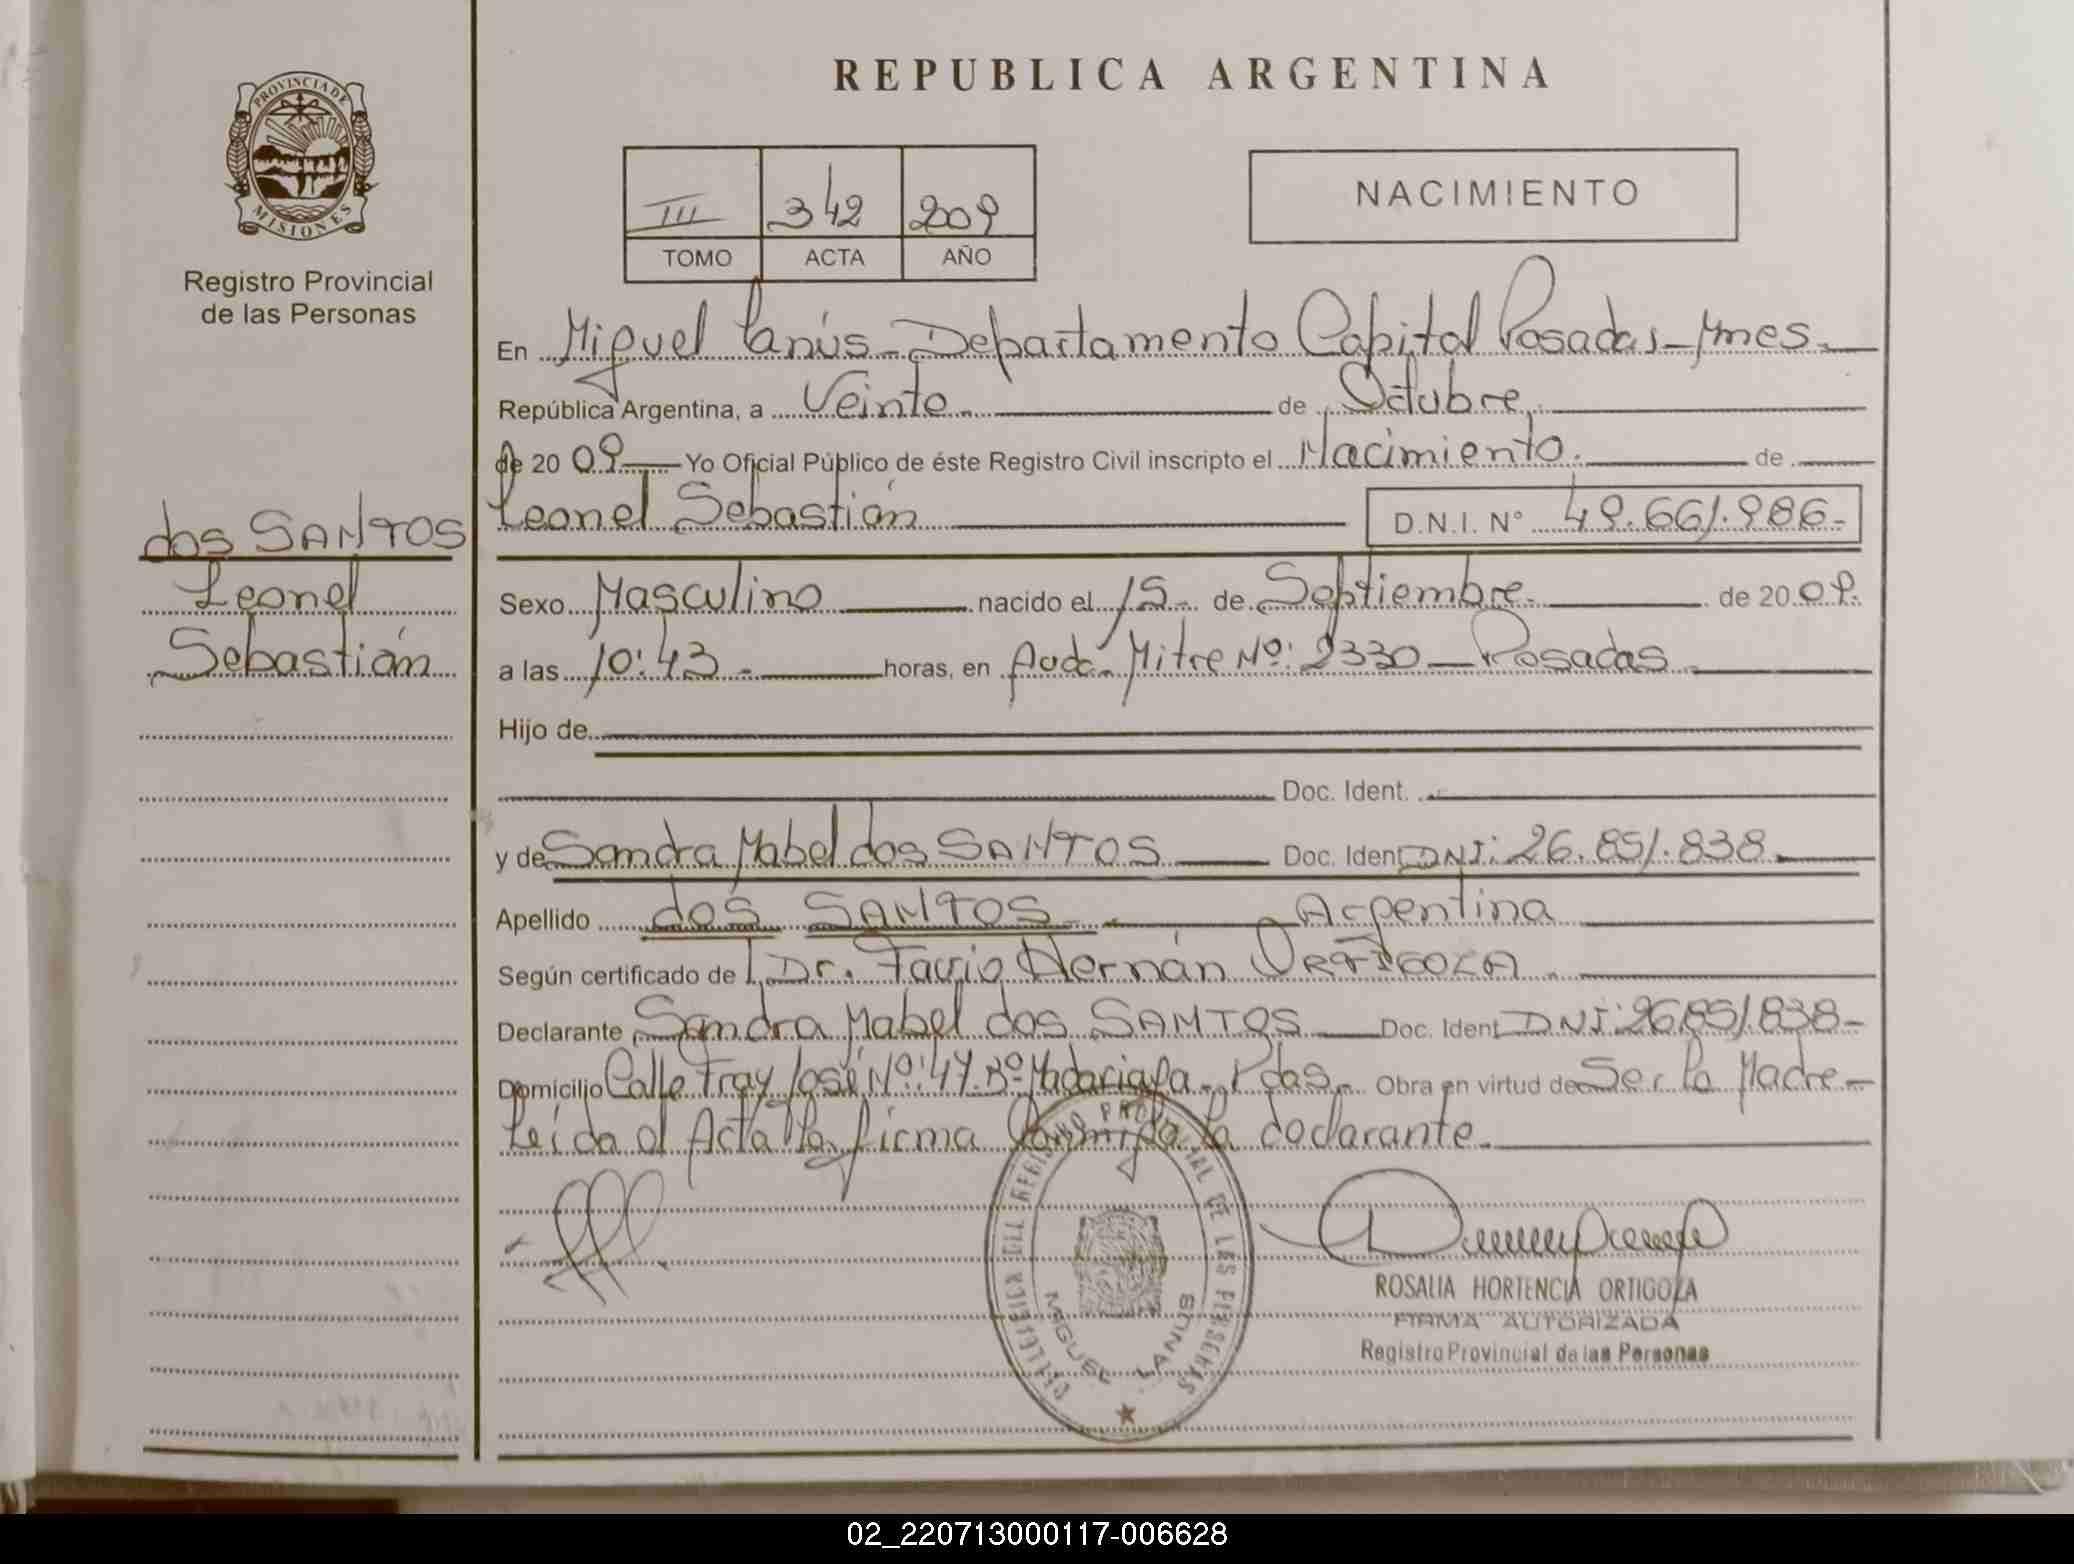 REPUBLICA ARGENTINA
PROVINCIA DE
MISIONES
Registro Provincial
de las Personas
III 342 2009
TOMO ACTA AÑO
NACIMIENTO
En Miguel Lanús - Departamento Capital Posadas - Mnes.
República Argentina, a Veinte de Octubre
de 20 09 Yo Oficial Público de éste Registro Civil inscripto el Nacimiento. de
Leonel Sebastián D.N.I. N° 49.661.986-
dos SANTOS
Leonel
Sebastián
Sexo Masculino nacido el 15 de Septiembre. de 20 09.
a las 10:43 horas, en Avda. Mitre Nº: 2330 - Posadas
Hijo de
Doc. Ident.
y de Sandra Mabel dos SANTOS Doc. Ident DNI: 26.851.838
Apellido dos SANTOS Argentina
Según certificado de Dr. Hernán
Declarante Sandra Mabel dos SANTOS Doc. Ident DNI: 26.851.838-
Domicilio Calle Fray José Nº: 47. Bº Madariaga - Pdas. Obra en virtud de Ser la Madre-
Leída el Acta la firma Conmigo la declarante.
DELEGACION DEL REGISTRO PROVINCIAL DE LAS PERSONAS
MIGUEL LANUS
ROSALIA HORTENCIA ORTIGOZA
FIRMA AUTORIZADA
Registro Provincial de las Personas
02_220713000117-006628